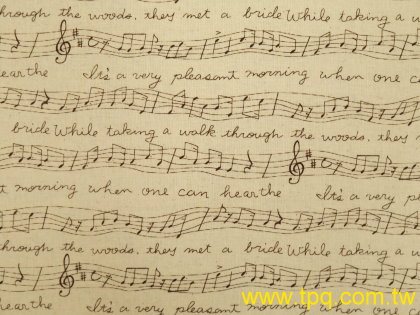 through the woods, they met a bride While taking a w
hear the It's a very pleasant morning when one c
bride While taking a walk through the woods, they m
t morning when one can hear the It's a very pl
through the woods, they met a bride While taking a w
hear the It's a very pleasant morning when one c
www.tpq.com.tw